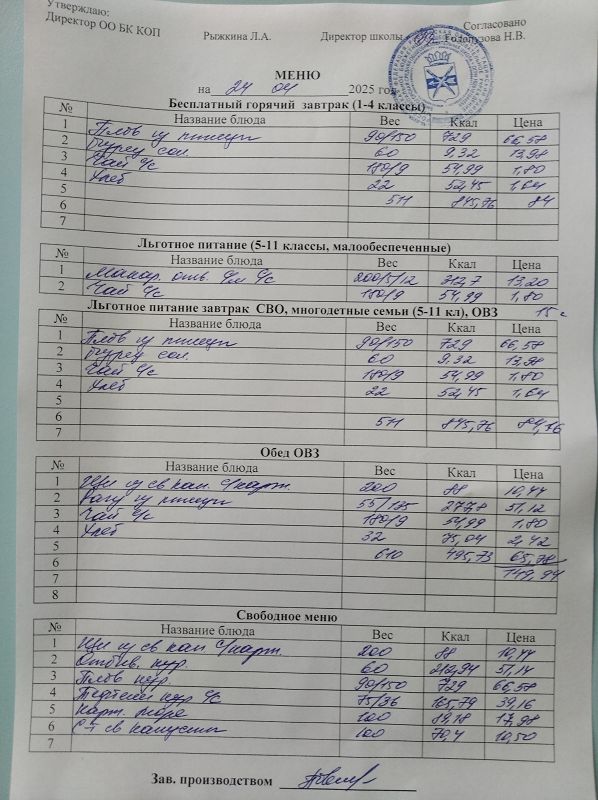 Утверждаю:
Директор ОО БК КОП Рыжкина Л.А. Директор школы Согласовано
Голопузова Н.В.
МЕНЮ
на 24 04 2025 год
Бесплатный горячий завтрак (1-4 классы)
№ Название блюда Вес Ккал Цена
1 Плов из птицы 90/150 729 66,58
2 Огурец сол. 60 9,32 13,98
3 Чай с/с 180/9 54,99 1,80
4 Хлеб 22 52,45 1,64
5 511 845,76 84
6
7
Льготное питание (5-11 классы, малообеспеченные)
№ Название блюда Вес Ккал Цена
1 Макар. отв. с/м с/с 200/5/12 312,7 13,20
2 Чай с/с 180/9 54,99 1,80
15
Льготное питание завтрак СВО, многодетные семьи (5-11 кл), ОВЗ
№ Название блюда Вес Ккал Цена
1 Плов из птицы 90/150 729 66,58
2 Огурец сол. 60 9,32 13,98
3 Чай с/с 180/9 54,99 1,80
4 Хлеб 22 52,45 1,64
5
6 511 845,76
7
Обед ОВЗ
№ Название блюда Вес Ккал Цена
1 Щи из св кап. с/карт. 200 88 10,44
2 Рагу из птицы 55/175 277,8 51,12
3 Чай с/с 180/9 54,99 1,80
4 Хлеб 32 75,04 2,42
5 610 495,73 65,78
6 149,94
7
8
Свободное меню
№ Название блюда Вес Ккал Цена
1 Щи из св кап. с/карт. 200 88 10,44
2 Отбив. кур. 60 212,94 51,14
3 Плов кур. 90/150 729 66,58
4 Тефтели кур с/с 75/36 165,79 39,16
5 Карт. пюре 100 89,18 17,98
6 С-т св капусты 100 70,4 10,50
7
Зав. производством